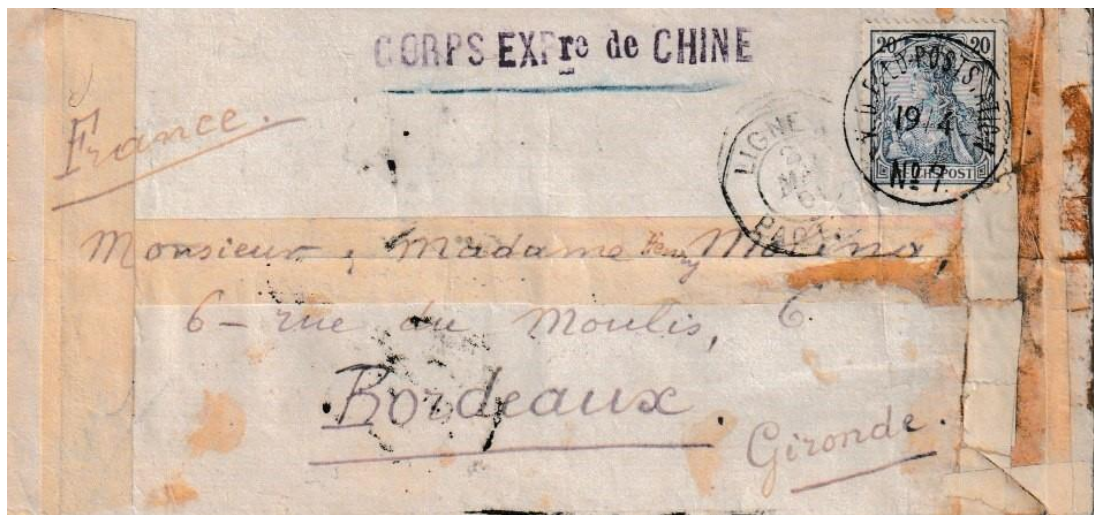 CORPS EXPre de CHINE
20 20
K.D. FELD-POSTSTATION
19/4
No 7.
REICHSPOST
LIGNE
France.
Monsieur, Madame Henry Molina,
6 - rue du Moulis, 6
Bordeaux.
Gironde.